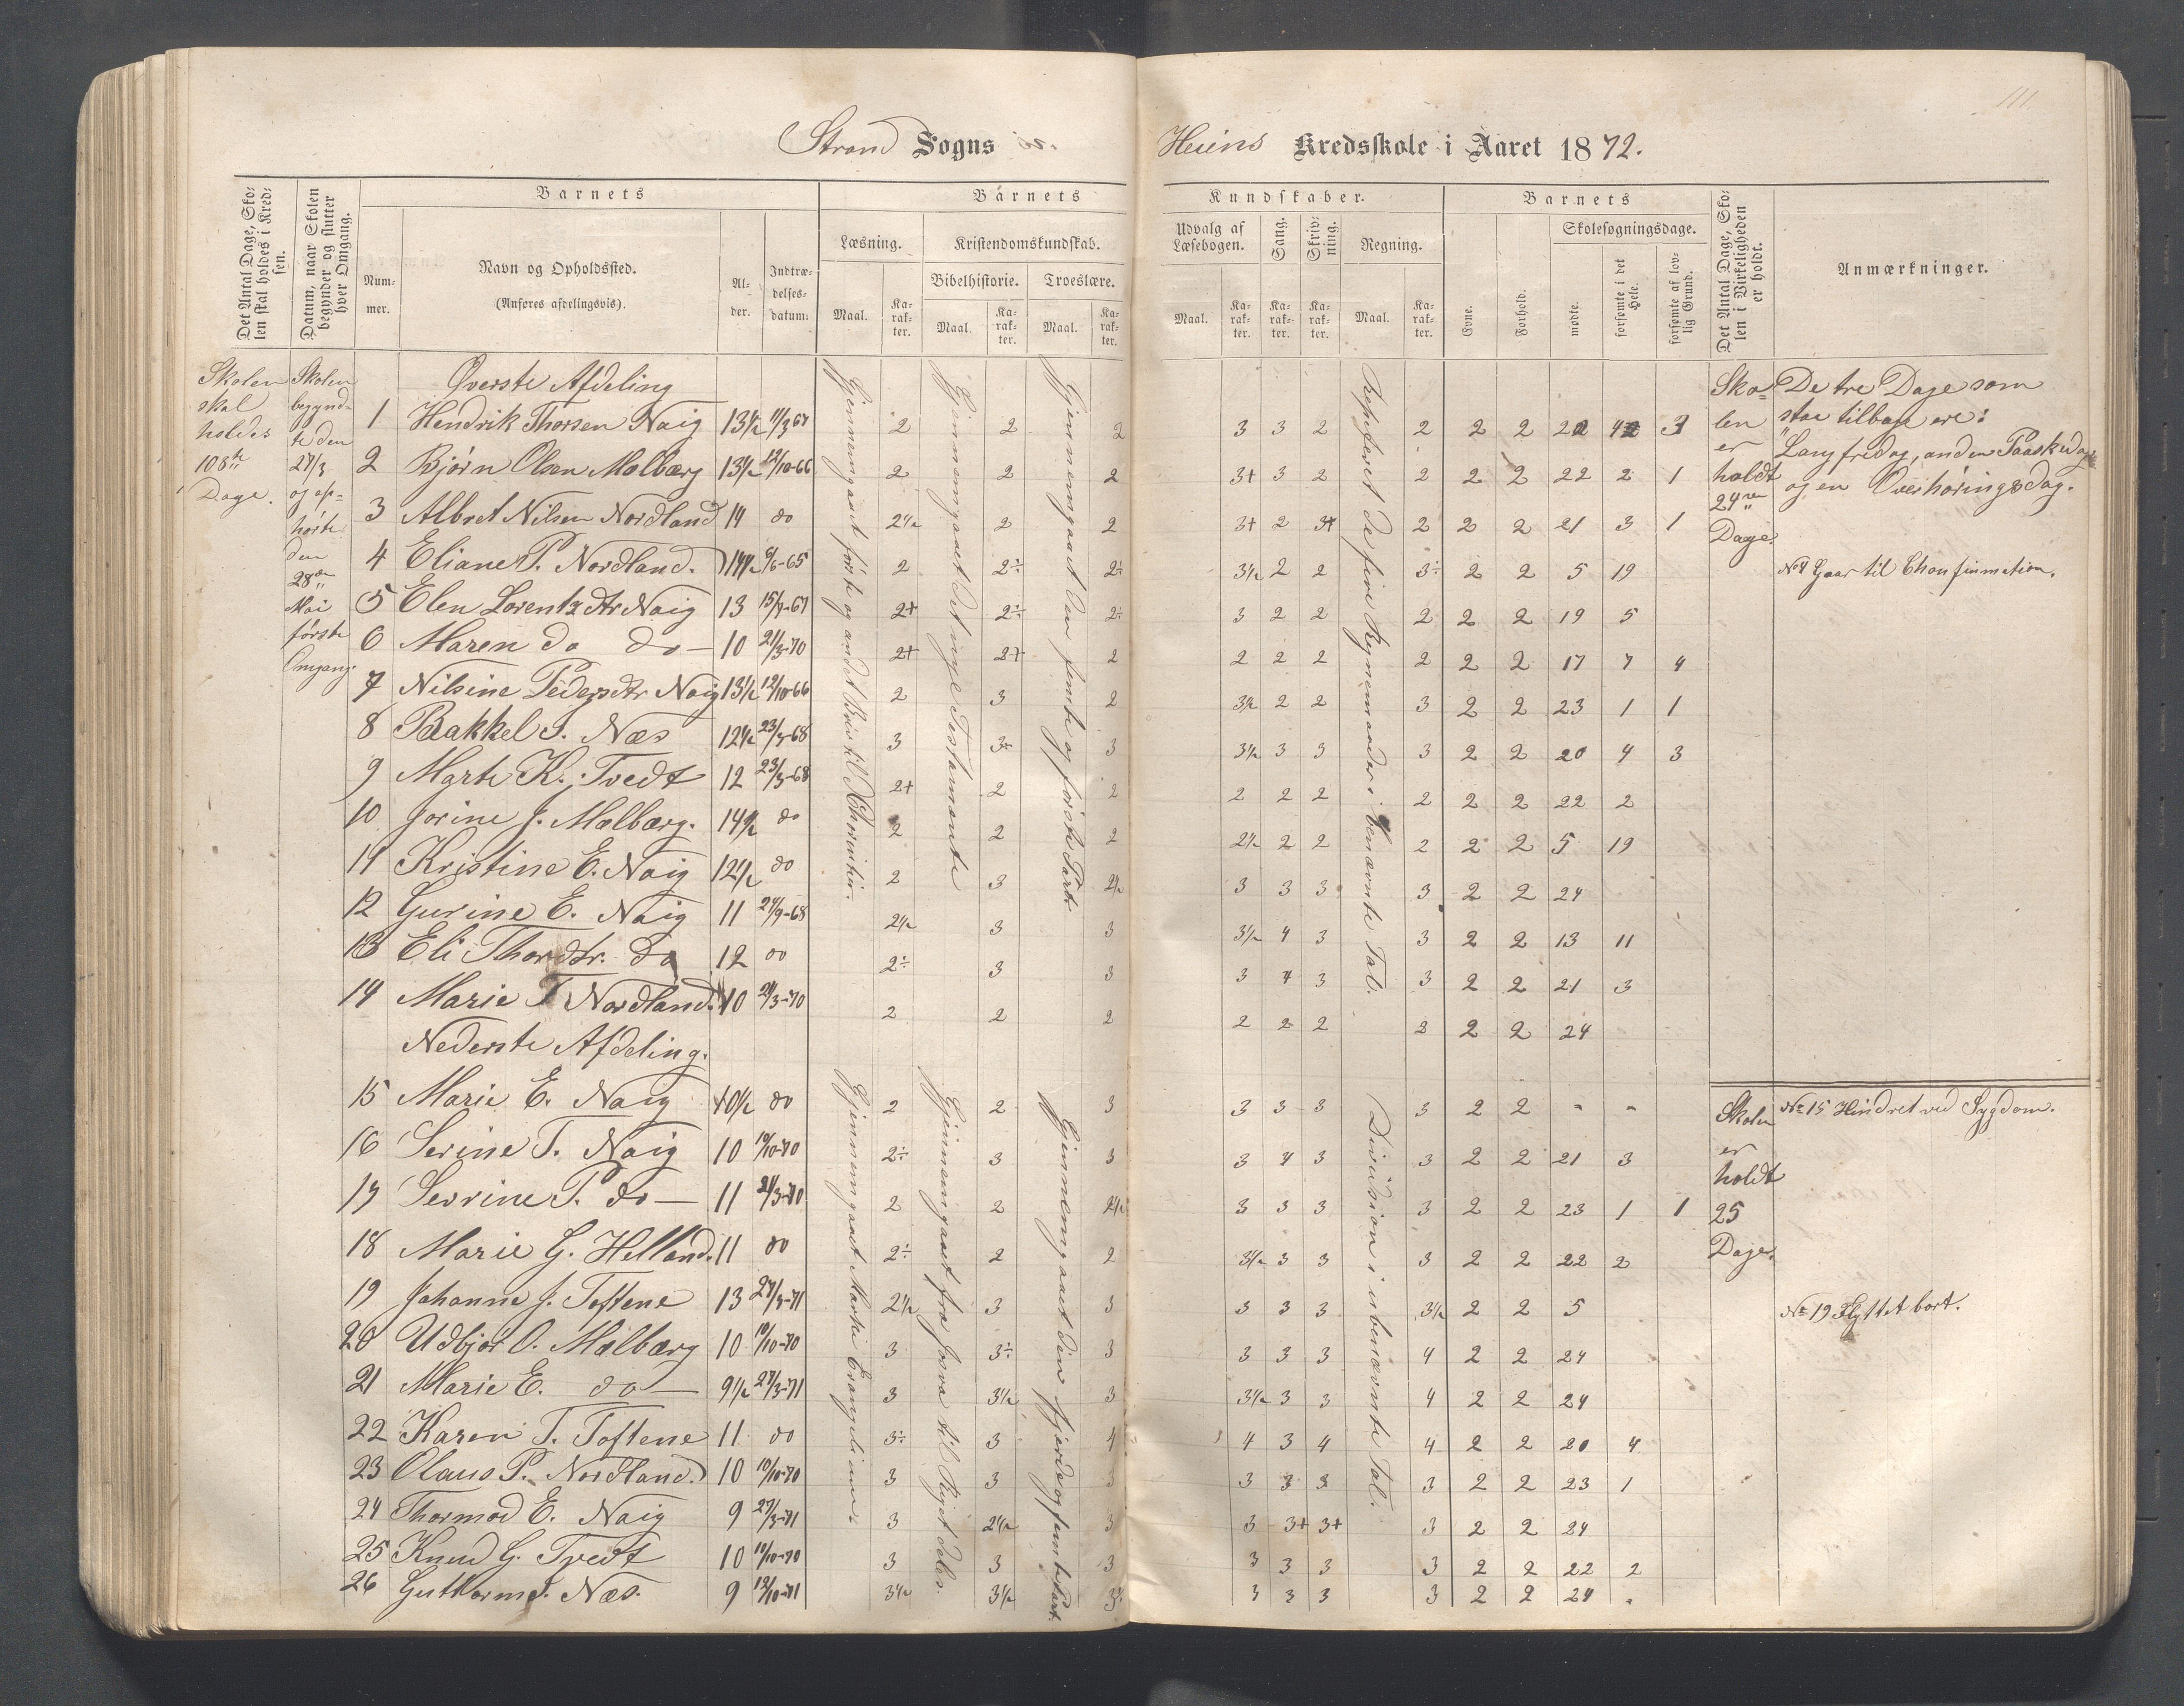 111.
Strand Sogns
Heiens Kredsskole i Aaret 1872.
Det Antal Dage, Skolen skal holdes i Kredsen.
Datum, naar Skolen begynder og slutter hver Omgang.
Barnets
Nummer.
Navn og Opholdssted.
(Anføres afdelingsvis).
Alder.
Indtrædelsesdatum.
Barnets
Kundskaber.
Læsning.
Kristendomskundskab.
Bibelhistorie.
Troeslære.
Maal.
Karakter.
Maal.
Karakter.
Maal.
Karakter.
Udvalg af Læsebogen.
Sang.
Skrivning.
Regning.
Maal.
Karakter.
Karakter.
Karakter.
Maal.
Karakter.
Barnets
Evne.
Forhold.
Skolesøgningsdage.
mødte.
forsømte i det Hele.
forsømte af lovlig Grund.
Det Antal Dage, Skolen i Virkeligheden er holdt.
Anmærkninger.
Skolen skal holdes 108 Dage.
Skolen begyndte den 27/3 og ophørte den 28de Mai første Omgang.
Øverste Afdeling
1 Hendrik Thorsen Naig 13½ 11/3 67 2 2 2 3 3 2 2 2 2
2 Bjørn Olsen Molbærg 13½ 12/10-66 2 2 2 3+ 3 2 2 2 2 22 2 1
3 Albret Nilsen Nordland 14 do 2½ 2 2 3+ 2 3+ 2 2 2 21 3 1
4 Eliane P. Nordland. 14½ 6/6-65 2 2÷ 2÷ 3½ 2 2 3÷ 2 2 5 19
5 Elen Lorentzdtr Naig 13 15/9-67 2+ 2÷ 2÷ 3 2 2 2 2 2 19 5
6 Maren do do 10 21/3-70 2+ 2+ 2 2 2 2 2 2 2 17 7 4
7 Nilsine Pedersdtr Naig 13½ 12/10-66 2 3 2 3½ 2 2 3 2 2 23 1 1
8 Rakkel S. Næs 12½ 23/3-68 3 3÷ 3 3½ 3 3 3 2 2 20 4 3
9 Marte K. Tvedt 12 23/3-68 2+ 2 2 2 2 2 2 2 2 22 2
10 Jorine J. Molbærg. 14½ do 2 2 2 2½ 2 2 2 2 2 5 19
11 Kristine E. Naig 12½ do 2 3 2½ 3 3 3 3 2 2 24
12 Gurine E. Naig 11 24/9-68 2½ 3 3 3½ 4 3 3 2 2 13 11
13 Eli Thordtr. do 12 do 2÷ 3 3 3 4 3 3 2 2 21 3
14 Marie T Nordland. 10 21/3-70 2 2 2 2 2 2 2 2 2 24
Nederste Afdeling.
15 Marie E. Naig 10½ do 2 2 3 3 3 3 3 2 2 " "
16 Serine T. Naig 10 10/10-70 2÷ 3 3 3 4 3 3 2 2 21 3
17 Sevrine P. do 11 21/3-70 2 2 2½ 3 3 3 3 2 2 23 1 1
18 Marie G. Helland. 11 do 2÷ 2 2 3½ 3 3 3 2 2 22 2
19 Johanne J. Toftene 13 27/3-71 2½ 3 3 3 3 3 3½ 2 2 5
20 Udbjør O. Molbærg 10 10/10-70 3 3÷ 3 3 3 3 4 2 2 24
21 Marie E. do 9½ 27/3-71 3 3½ 3 3½ 3 3 4 2 2 24
22 Karen T. Toftene 11 do 3÷ 3 4 4 3 4 4 2 2 20 4
23 Olaus P. Nordland. 10 10/10-70 3 3 3 3 3 3 3 2 2 23 1
24 Thormod E. Naig 9 27/3-71 3 2½ 3 3 3+ 3+ 3 2 2 24
25 Knud G. Tvedt 10 10/10-70 3 3 3 3 3 3 3 2 2 22 2
26 Guthorm S. Næs. 9 12/10-71 3½ 3½ 3½ 3 3 3 3 2 2 24 "
Gjennemgaaet første og andet Brev til Korintier.
Gjennemgaaet det nye Testamente
Gjennemgaaet den femte og første Part
Repiteret de fire Regnemaader i benævnte Tal.
Gjennemgaaet Marki Evangelium.
Gjennemgaaet fra Josva til Riget deles.
Gjennemgaaet den fjerde og femte Part.
Divission i ubenævnte Tal.
Skolen er holdt 24 Dage.
De tre Dage som
staa tilbage ere:
Langfredag, anden Paaskedag
og en Overhøringsdag.
No 4 Gaar til Chonfirmation.
Skolen er holdt 25 Dage.
No 15 Hindret ved Sygdom.
No 19 Flyttet bort.